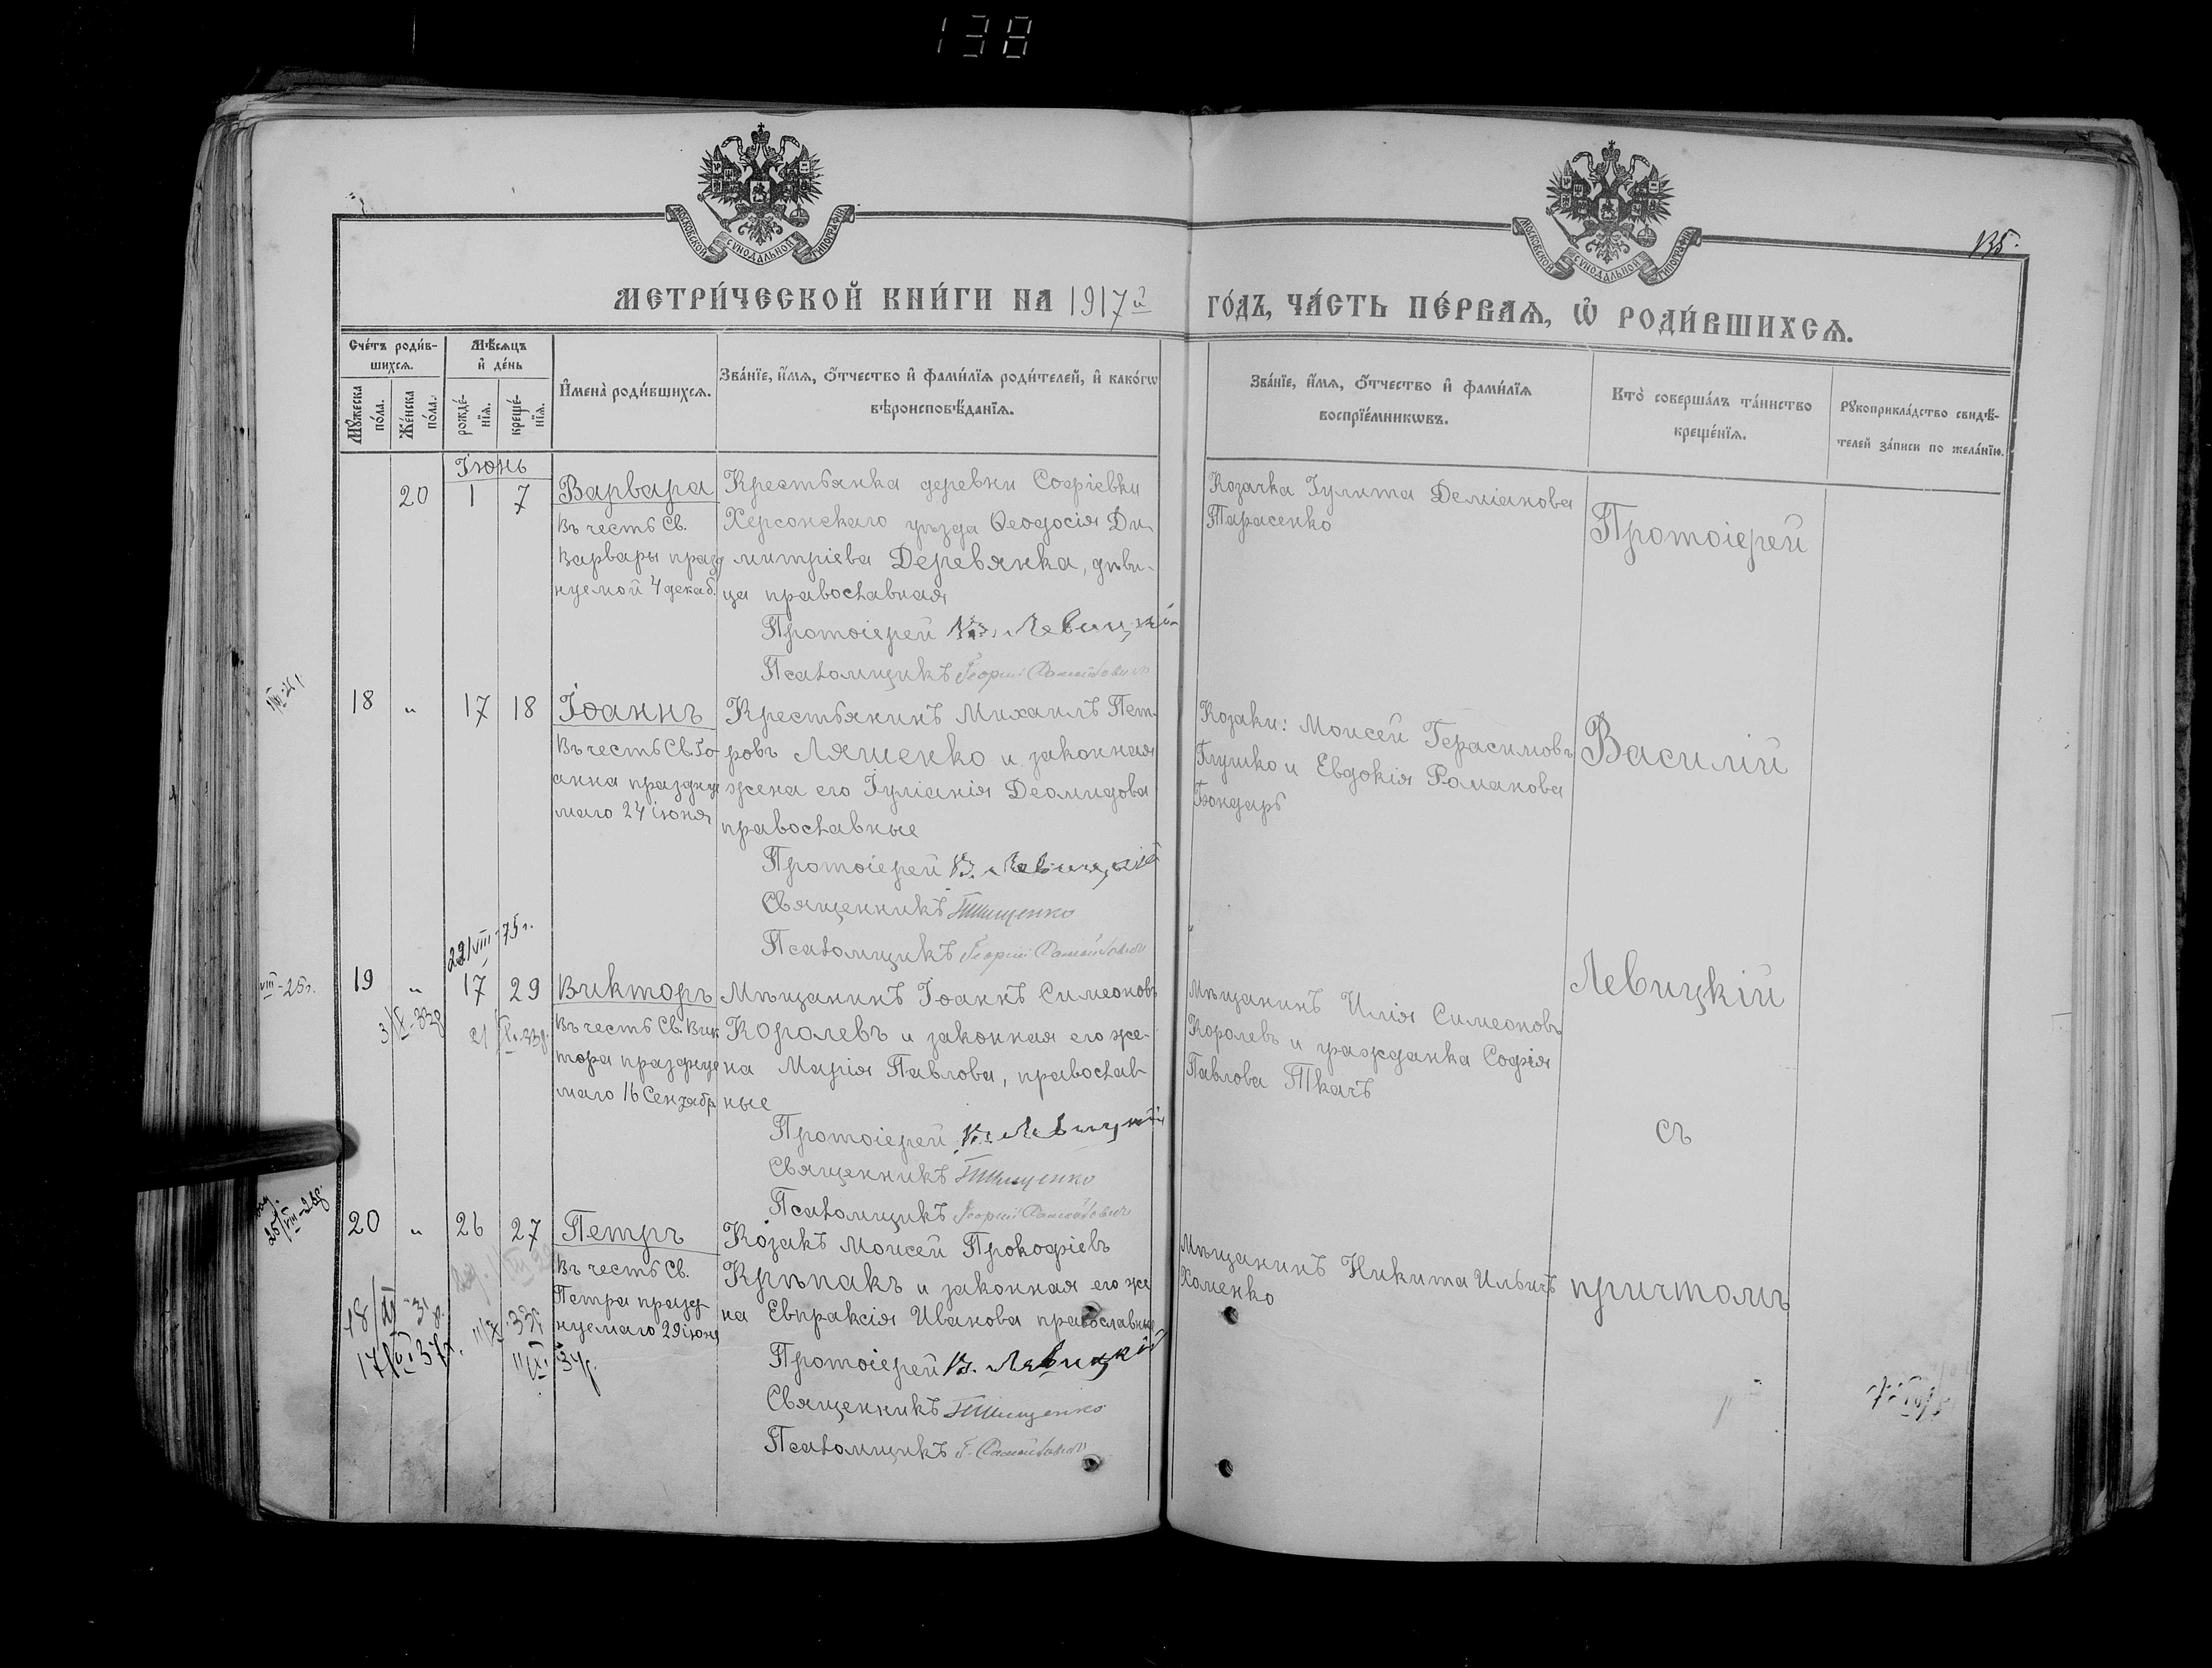 138
МОСКОВСКОЙ СѴНОДАЛЬНОЙ ТИПОГРАФІИ
МОСКОВСКОЙ СѴНОДАЛЬНОЙ ТИПОГРАФІИ
135.
МЕТРИ́ЧЕСКОЙ КНИ́ГИ НА 1917й
ГО́ДЪ, ЧА́СТЬ ПЕ́РВАѦ, Ѡ РОДИ́ВШИХСѦ.
Сче́тъ роди́в-
шихсѧ.
Мꙋ́жеска
по́ла.
Же́нска
по́ла.
Мѣ́сѧцъ
и де́нь
рожде́-
нїѧ.
креще́-
нїѧ.
И҆мена̀ роди́вшихсѧ.
Зва́нїе, и҆́мѧ, ѻ҆́тчество и҆ фами́лїѧ роди́телей, и҆ како́гѡ
вѣроисповѣ́данїѧ.
Зва́нїе, и҆́мѧ, ѻ҆́тчество и҆ фами́лїѧ
воспрїе́мникѡвъ.
Кто̀ соверша́лъ та́инство
креще́нїѧ.
Рꙋкоприкла́дство свидѣ́-
телей за́писи по жела́нїю.
Іюнь
20
1
7
Варвара
Въ честь Св.
Варвары празд
нуемой 4 декаб.
Крестьянка деревни Софіевки
Херсонскаго уѣзда Ѳеодосія Ди-
митріева Деревянка, дѣви-
ца православная
Протоіерей В. Левицкій
Псаломщикъ Георгій
Козачка Іулита Деміанова
Тарасенко
Протоіерей
18
"
17
18
Іоаннъ
Въ честь Св. Іо-
анна праздну
маго 24 іюня
Крестьянинъ Михаилъ Пет-
ровъ Ляшенко и законная
жена его Іуліанія Деомидова
православные
Протоіерей В. Левицкій
Священникъ Тищенко
Псаломщикъ Георгій
Козаки: Моисей Герасимовъ
Глушко и Евдокія Романова
Бондарь
Василій
22/VIII-75г.
VIII-25г.
19
"
17
29
3/IX-33г
21/IX-33г.
Викторъ
Въ честь Св. Вик
тора празднуе
маго 16 Сентябр.
Мѣщанинъ Іоаннъ Симеоновъ
Королевъ и законная его же-
на Марія Павлова, православ-
ные
Протоіерей В. Левицкій
Священникъ Тищенко
Псаломщикъ Георгій
Мѣщанинъ Илія Симеоновъ
Королевъ и гражданка Софія
Павлова Ткачъ
Левицкій
съ
25/VIII-28г.
20
"
26
27
Петръ
Въ честь Св.
Петра празд-
нуемаго 29 іюня
Козакъ Моисей Прокофіевъ
Крѣпакъ и законная его же
на Евпраксія Иванова православные
Протоіерей В. Левицкій
Священникъ Тищенко
Псаломщикъ Г.
Мѣщанинъ Никита Ильичъ
Хоменко
причтомъ